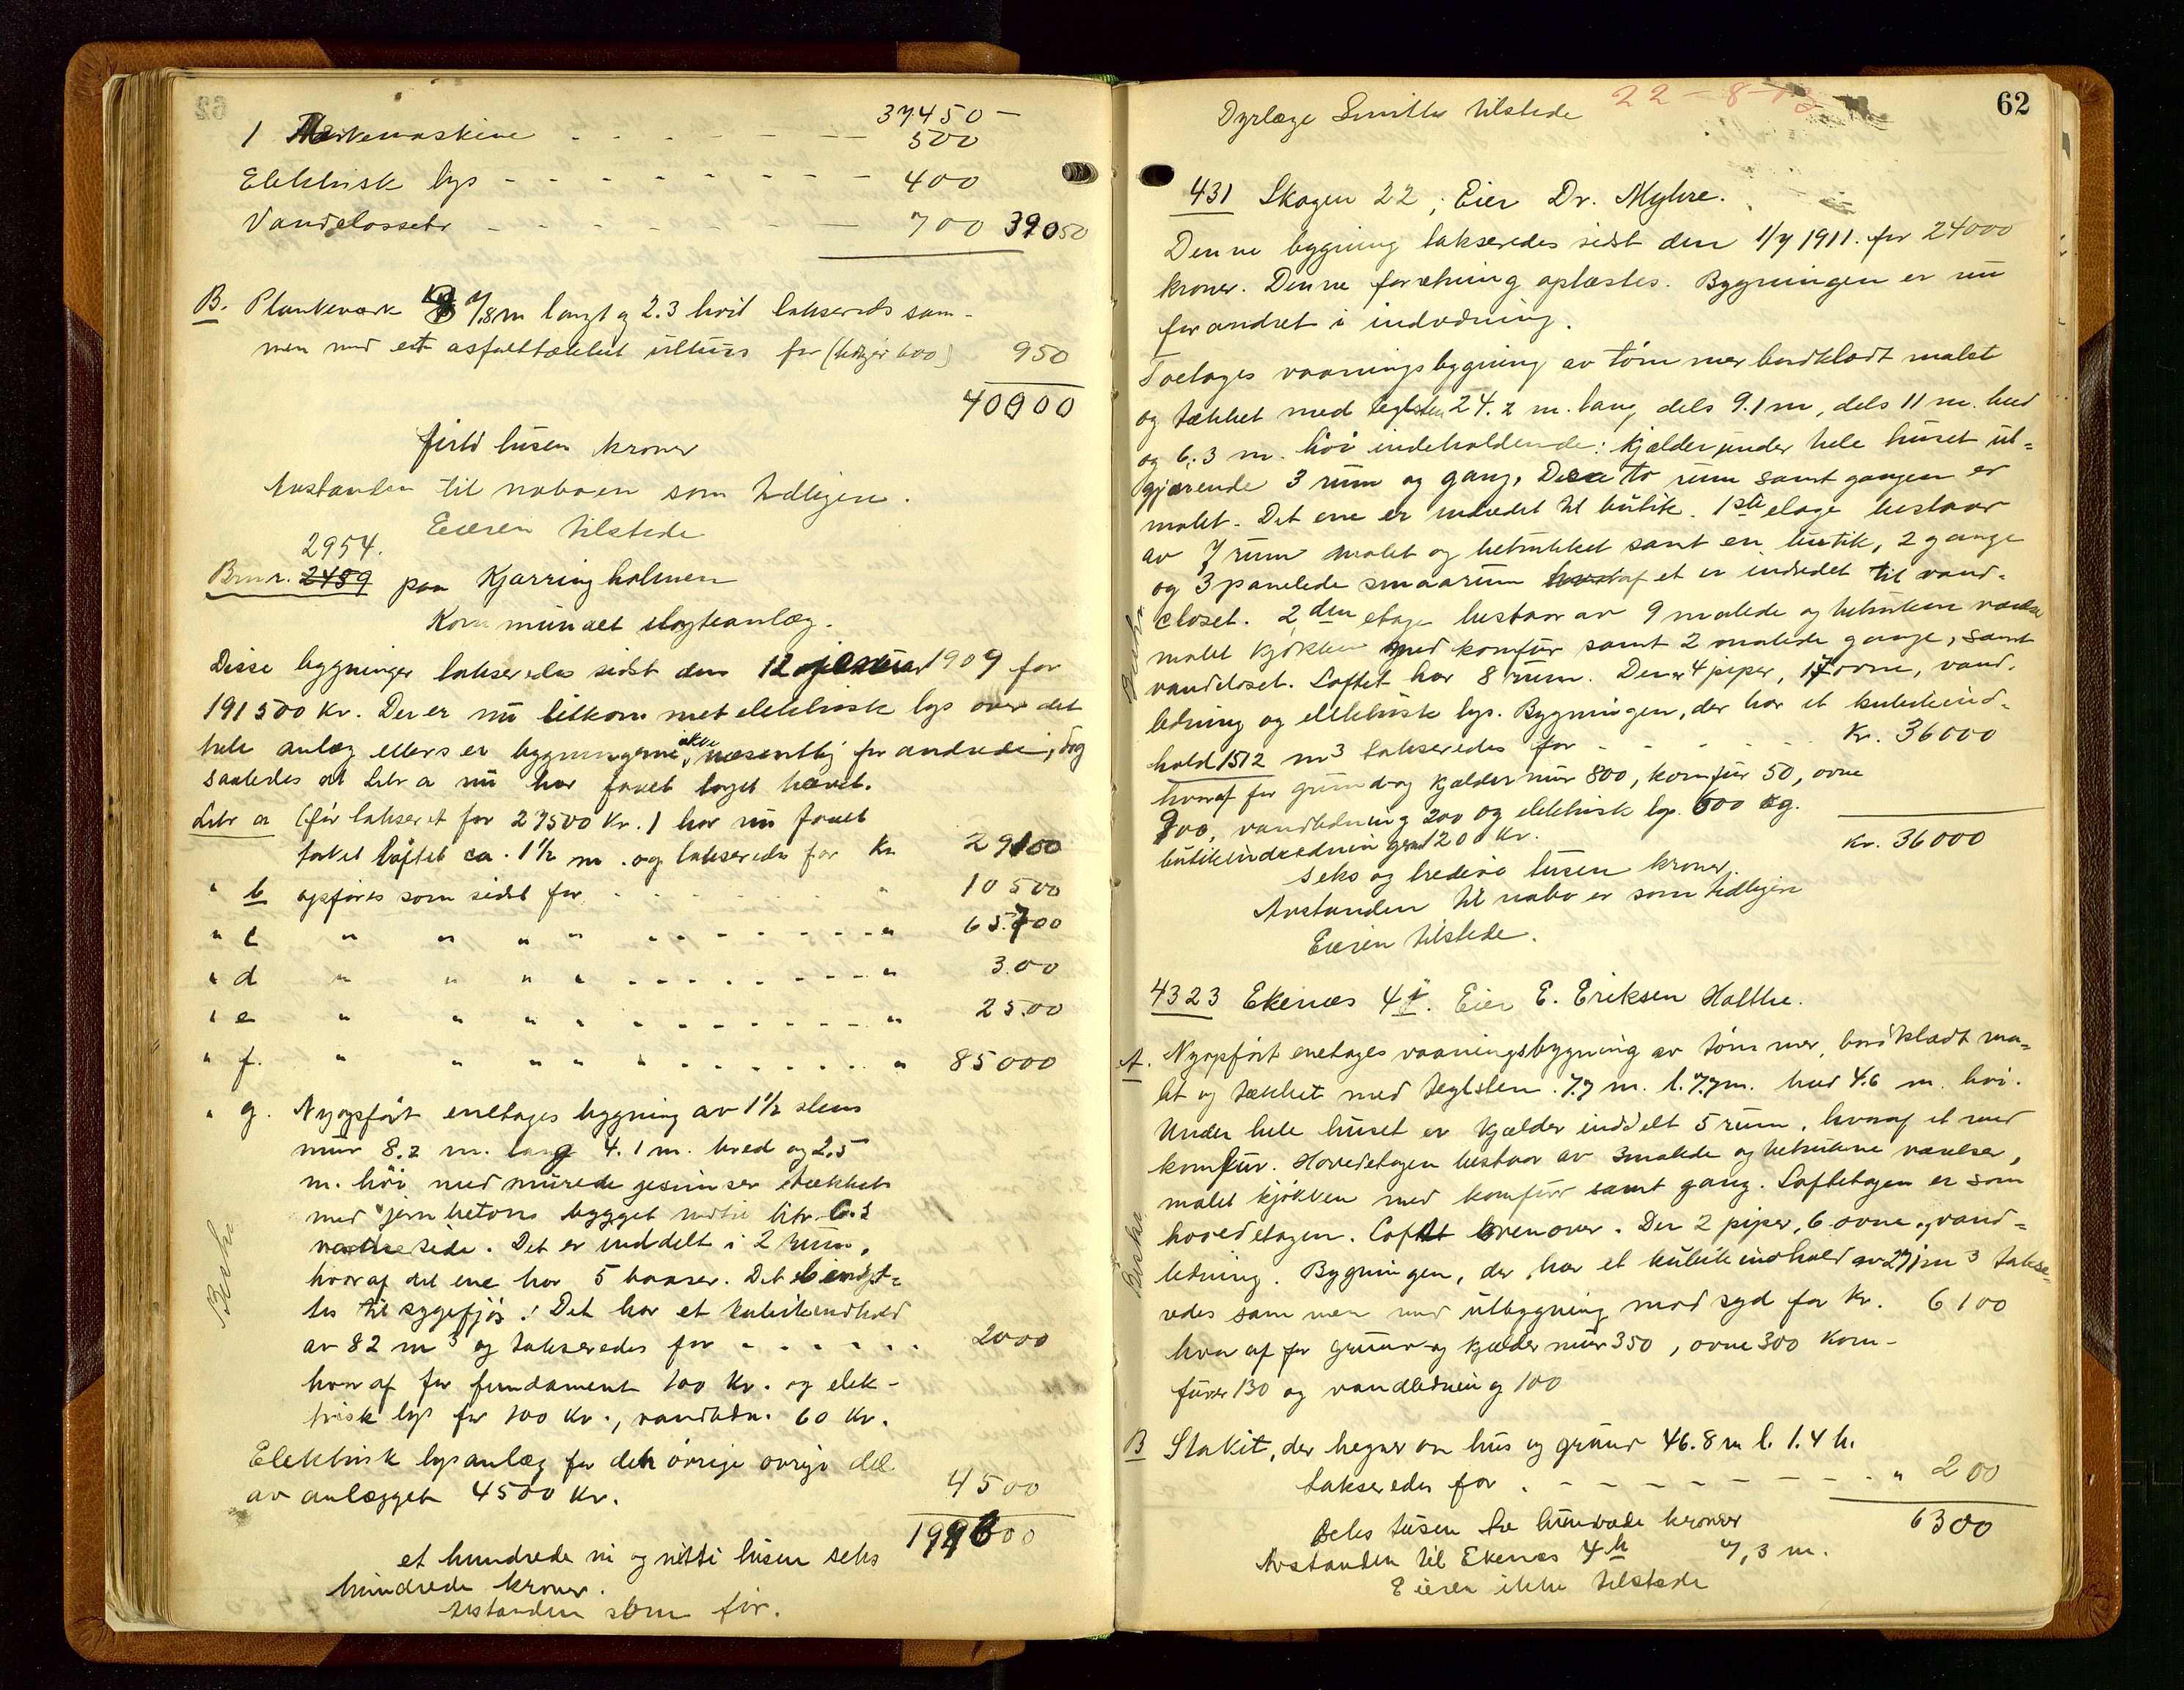 37450 –
1 Markemaskine - - - - - - 500
Elektrisk lys - - - - - - - - 400
Vandclossetr - - - - - - - 700 39050
B. Plankeværk 7.8 m langt og 2.3 höit taksereds sam-
men med et asfalttækket uthus for (tidligere 600) 950
40000
firti tusen kroner
Avstanden til naboen som tidligere.
Eieren tilstede
2954.
Brnr. 2489 paa Kjærringholmen
Kommunalt slagteanlæg.
Disse bygninger takseredes sidst den 12 januar 1909 for
191500 Kr. Der er nu tilkommet elektrisk lys over det
hele anlæg ellers er bygningerne ikke væsentlig forandrede, dog
saaledes at Litr a nu har faaet taget hævet.
Litr a (för taksert for 27500 Kr.) har nu faaet
taket löftet ca. 1½ m. og takseredes for Kr 29100
" b opföres som sidst for - - - - - " 10500
" c " " " " - - - - - - - " 65700
" d " " " " - - - - - - - " 300
" e " " " " - - - - - - - " 2500
" f. " " " " - - - - - - - " 85000
" g. Nyopfört enetages bygning av 1½ stens
mur 8.2 m. lang 4.1 m. bred og 2.5
m. höi med murede gesimser tækket
med jernbetong bygget indtil litr. C.s
vestre side. Det er inddelt i 2 rum,
hvoraf det ene har 5 baaser. Det benyt-
tes til sygefjös. Det har et kubikindhold
av 82 m3 og takseredes for - - - - - - 2000
hvoraf for fundament 100 Kr. og elek-
trisk lys for 100 Kr., vandledn. 60 Kr.
Beskr
Elektrisk lysanlæg for den övrige övrige del
av anlægget 4500 Kr. 4500
199600
et hundrede ni og nitti tusen seks
hundrede kroner.
Avstanden som för.
62
Dyrlæge Smith tilstede 22-8-13
431 Skagen 22, Eier Dr. Myhre.
Denne bygning takseredes sidst den 1/7 1911. for 24000
kroner. Denne forretning oplæstes. Bygningen er nu
forandret i indredning.
Toetages vaaningsbygning av tömmer bordklædt malet
og tækket med teglsten 24.2 m. lang, dels 9.1 m, dels 11 m. bred
og 6.3 m. höi indeholdende: Kjælder under hele huset ut-
gjørende 3 rum og gang, Disse to rum samt gangen er
malet. Det ene er indredet til butik. 1ste etage bestaar
av 7 rum malet og betrukket samt en butik, 2 gange
og 3 panelede smaarum hvoraf et er indredet til vand-
closet. 2den etage bestaar av 9 malede og betrukne værelser
malet kjökken med komfur samt 2 malede gange, samt
vandcloset. Loftet har 8 rum. Der er 4 piper, 17 ovne, vand-
ledning og elektrisk lys. Bygningen, der har et kubikind-
hold 1512 m3 takseredes for - - - - - - Kr. 36000
hvoraf for grund og kjældermur 800, komfur 50, ovne
900, vandledning 200 og elektrisk lys. 600 og.
butikindredningen 1200 Kr. Kr. 36000
seks og tredive tusen kroner.
Avstanden til nabo er som tidligere
Eieren tilstede.
Beskr
4323 Ekenæs 4 i. Eier E. Eriksen Holthe.
A. Nyopfört enetages vaaningsbygning av tömmer, bordklædt ma-
let og tækket med teglsten. 7.7 m. l. 7.7 m. bred 4.6 m. höi.
Under hele huset er kjælder inddelt 5 rum, hvoraf et med
komfur. Hovedetagen bestaar av 3 malede og betrukne værelser,
malet kjökken med komfur samt gang. Loftetagen er som
hovedetagen. Loft ovenover. Der 2 piper, 6 ovne, vand-
ledning. Bygningen, der har et kubikindhold av 271 m3 takse-
redes sammen med utbygning mod syd for Kr. 6100
hvoraf for grund og kjældermur 350, ovne 300 Kom-
furer 130 og vandledning 100
Beskr
B Stakit, der hegner om hus og grund 46.8 m l. 1.4 h.
takseredes for - - - - - - - - - " 200
6300
Seks tusen tre hundrede kroner
Avstanden til Ekenæs 4 h 7,3 m.
Eieren ikke tilstede